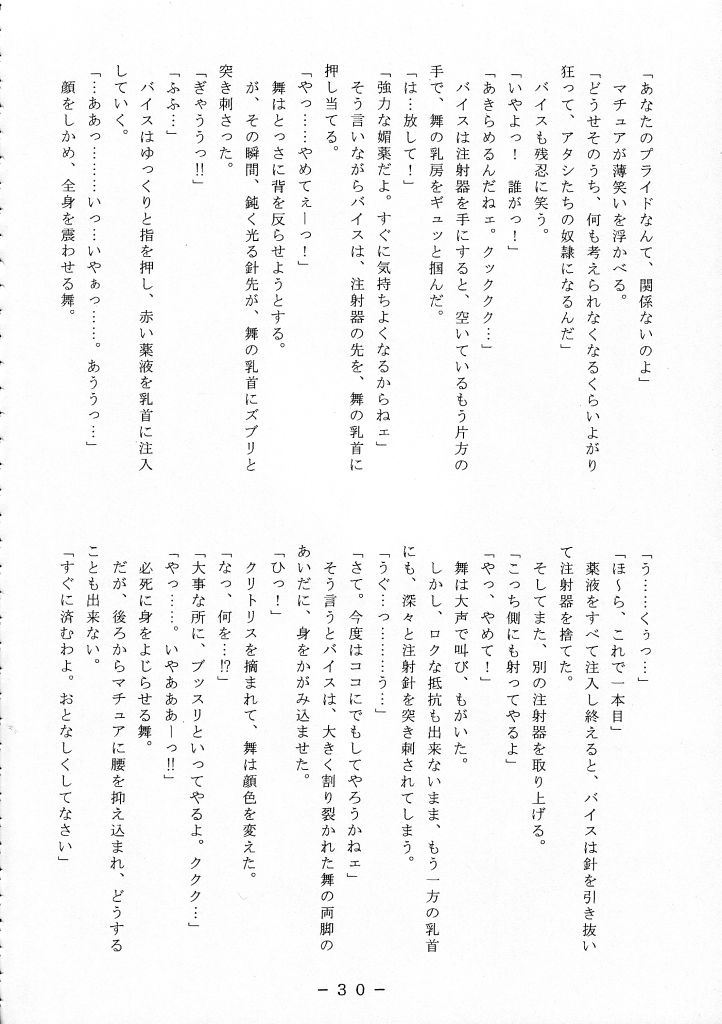 「あなたのプライドなんて、関係ないのよ」
マチュアが薄笑いを浮かべる。
「どうせそのうち、何も考えられなくなるくらいよがり
狂って、アタシたちの奴隷になるんだ」
バイスも残忍に笑う。
「いやよっ！　誰がっ！」
「あきらめるんだねェ。クックククク…」
バイスは注射器を手にすると、空いているもう片方の
手で、舞の乳房をギュッと掴んだ。
「は…放して！」
「強力な媚薬だよ。すぐに気持ちよくなるからねェ」
そう言いながらバイスは、注射器の先を、舞の乳首に
押し当てる。
「やっ……やめてぇーっ！」
舞はとっさに背を反らせようとする。
が、その瞬間、鈍く光る針先が、舞の乳首にズブリと
突き刺さった。
「ぎゃううっ!!」
「ふふ…」
バイスはゆっくりと指を押し、赤い薬液を乳首に注入
していく。
「…ああっ………いっ…いやぁっ……。あううっ…」
顔をしかめ、全身を震わせる舞。
「う……くぅっ…」
「ほ～ら、これで一本目」
薬液をすべて注入し終えると、バイスは針を引き抜い
て注射器を捨てた。
そしてまた、別の注射器を取り上げる。
「こっち側にも射ってやるよ」
「やっ、やめて！」
舞は大声で叫び、もがいた。
しかし、ロクな抵抗も出来ないまま、もう一方の乳首
にも、深々と注射針を突き刺されてしまう。
「うぐ…っ………う…」
「さて。今度はココにでもしてやろうかねェ」
そう言うとバイスは、大きく割り裂かれた舞の両脚の
あいだに、身をかがみ込ませた。
「ひっ！」
クリトリスを摘まれて、舞は顔色を変えた。
「なっ、何を…!?」
「大事な所に、ブッスリといってやるよ。ククク…」
「やっ……。いやあああーっ!!」
必死に身をよじらせる舞。
だが、後ろからマチュアに腰を抑え込まれ、どうする
ことも出来ない。
「すぐに済むわよ。おとなしくしてなさい」
－３０－